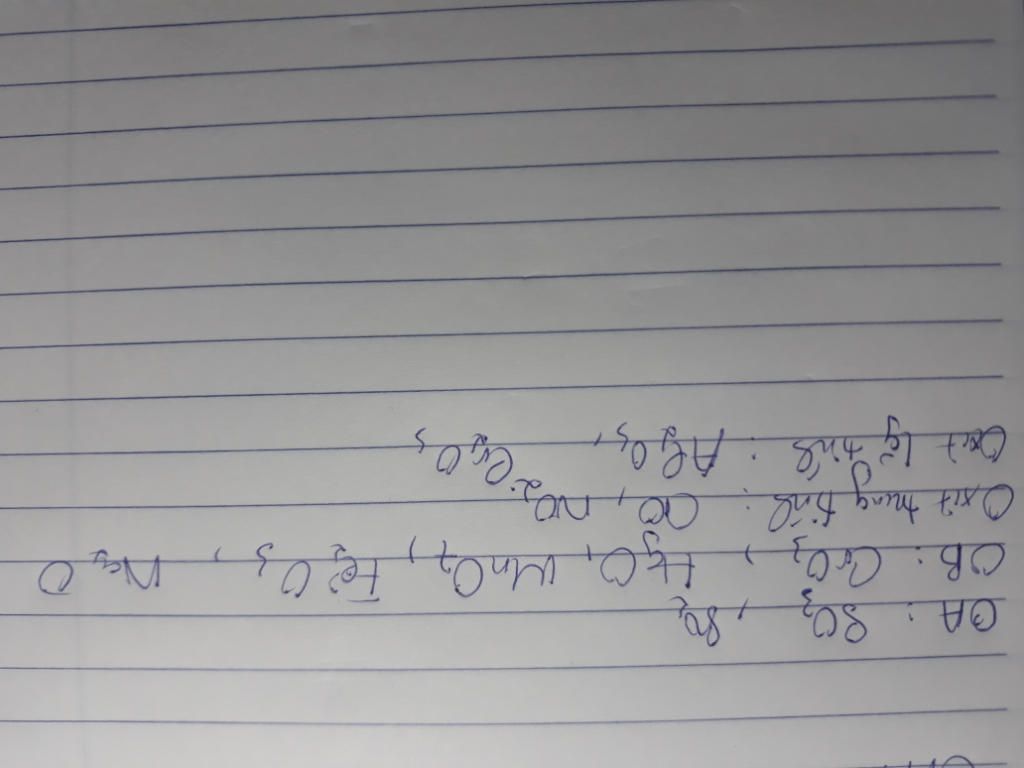 OA : SO3, SO2
OB : CrO3, HgO, MnO2, Fe2O3, Na2O
Oxit trung tính : CO, NO2
Oxit lg tính : Al2O3, Cr2O3